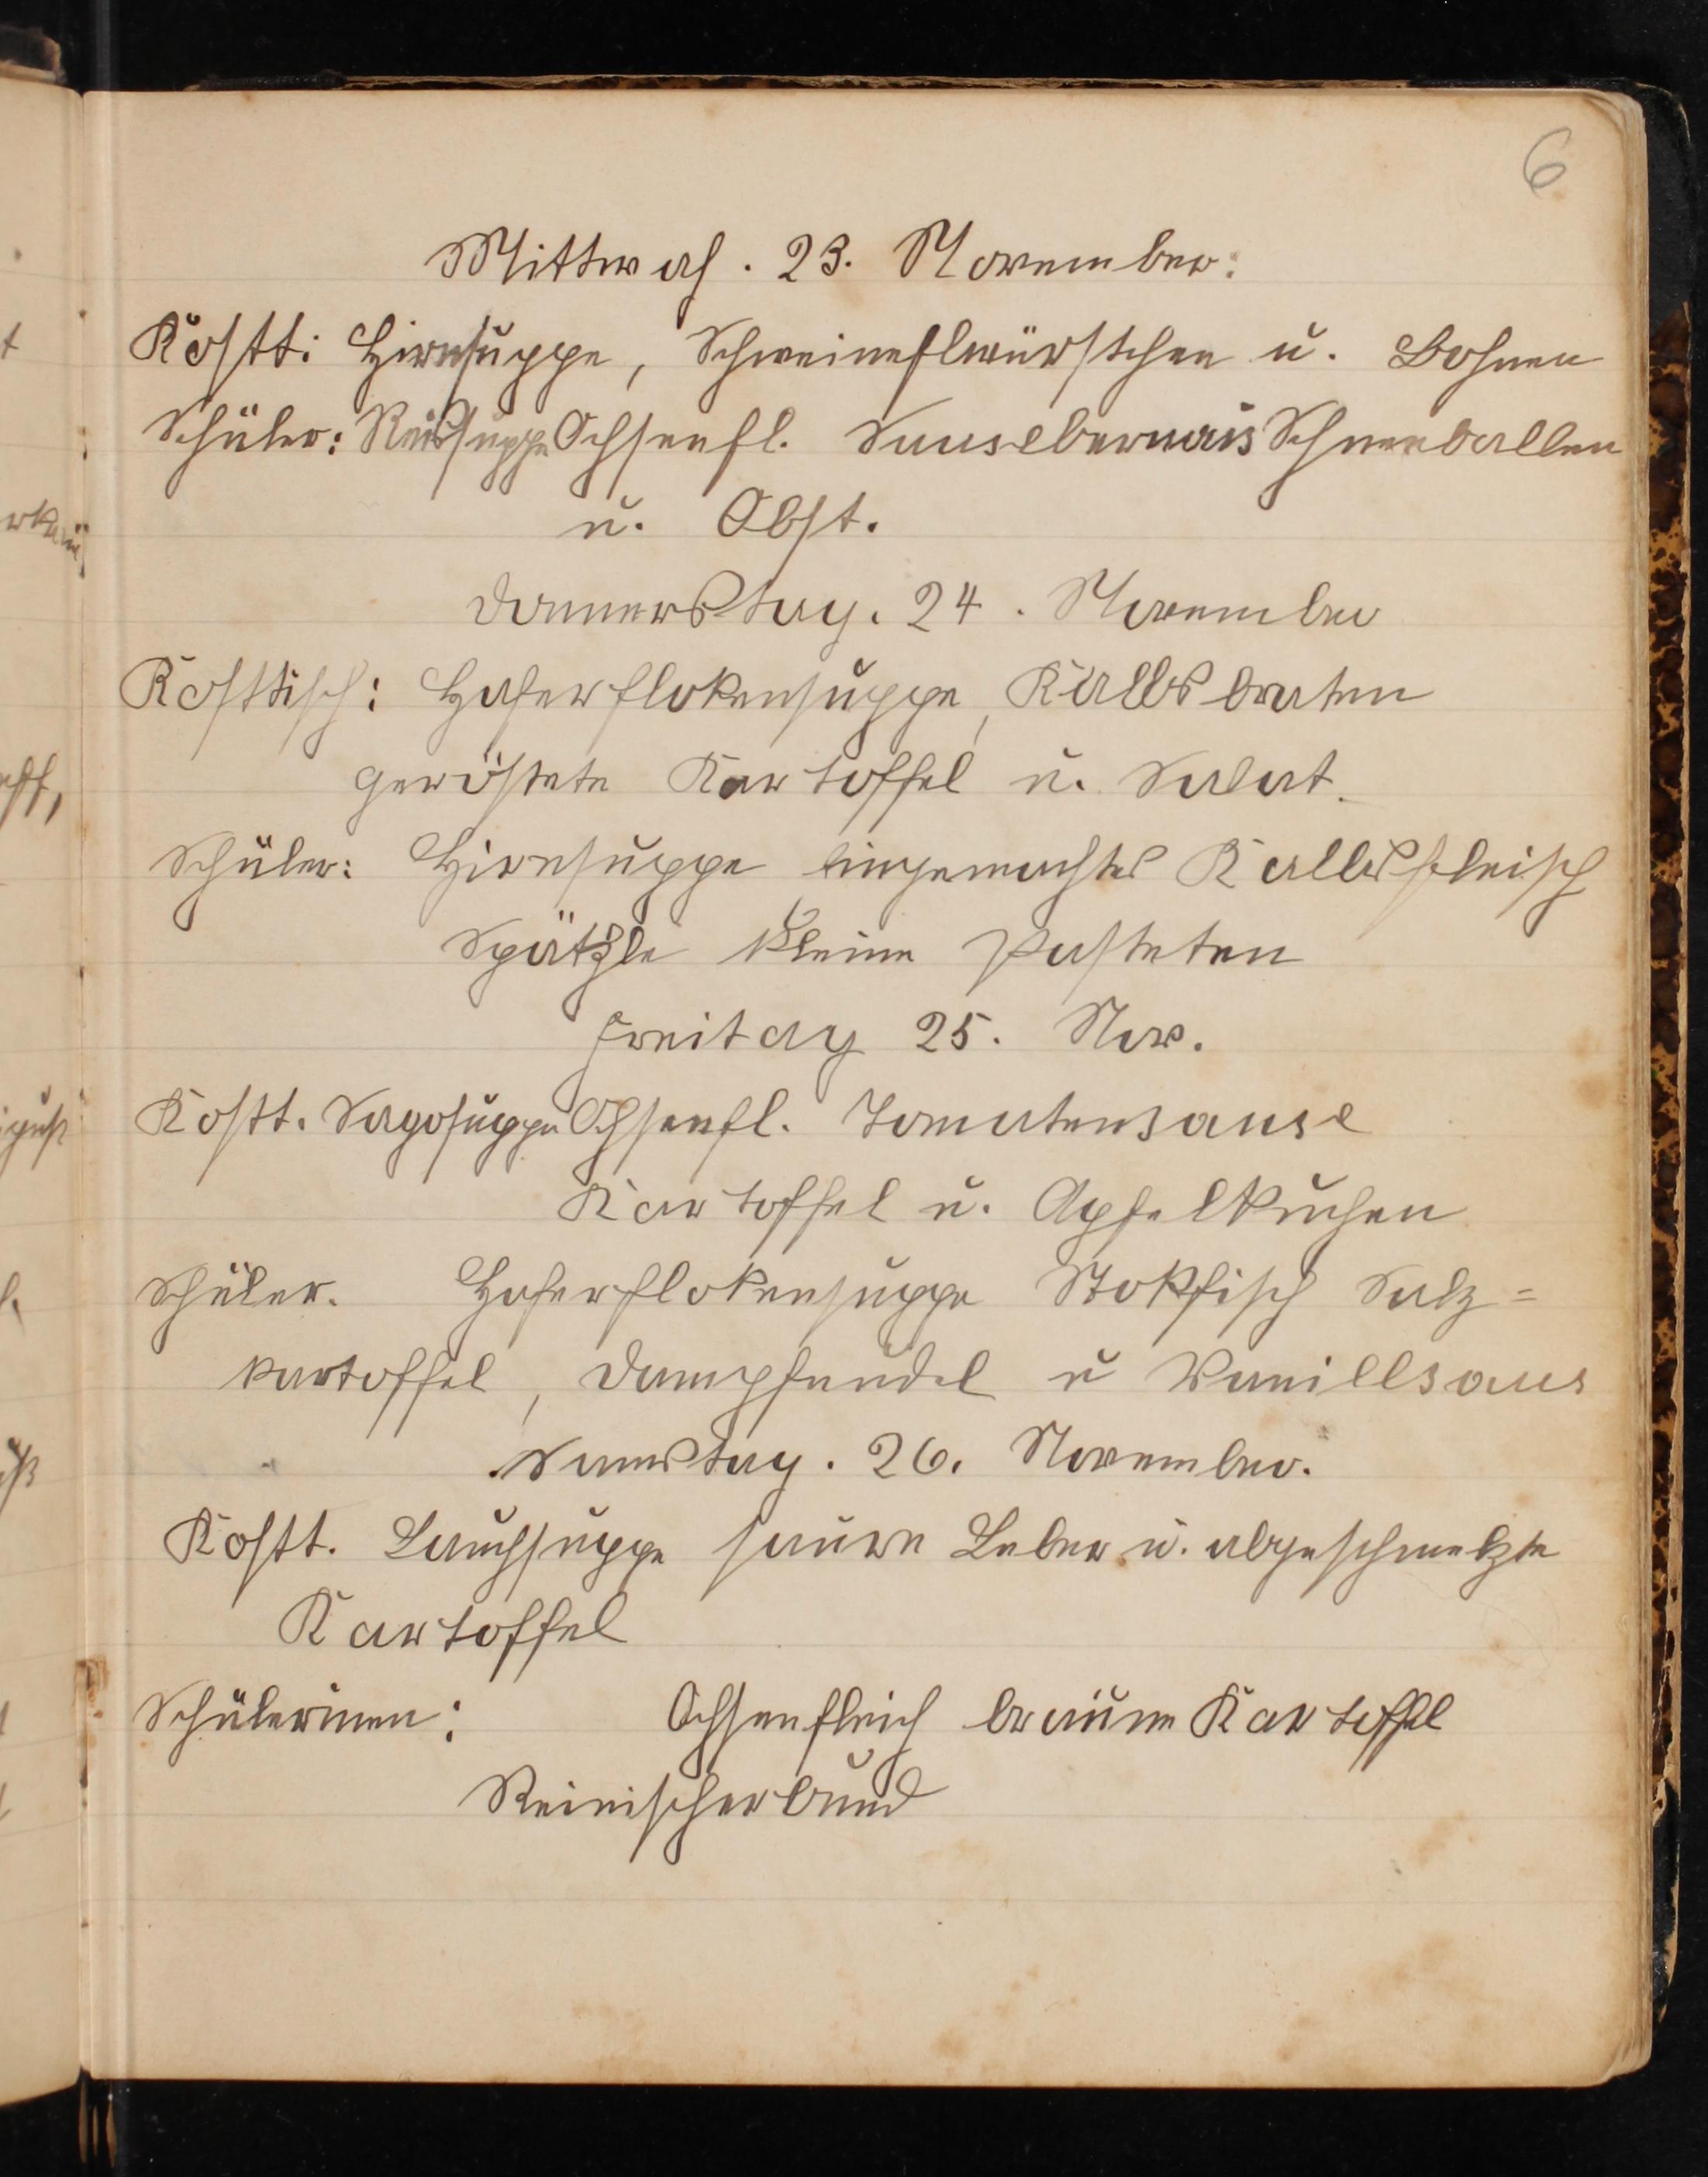 6
Mittwoch. 23. November:
Kostt: Hirnsuppe, Schweineflwürstchen u. Bohnen
Schüler: Reissuppe Ochsenfl. Sausebernais Schneeballen
u. Obst.
Donnerstag. 24. November
Kosttisch: Haferflokensuppe, Kalbsbraten
geröstete Kartoffel u. Salat.
Schüler: Hirnsuppe eingemachtes Kalbsfleisch
Spätzle kleine Pasteten
Freitag 25. Nov.
Kostt. Sagosuppe Ochsenfl. Tomatensause
Kartoffel u. Apfelkuchen
Schüler. Haferflokensuppe Stokfisch Salz=
kartoffel, Dampfnudel u Vanillsaus
Samstag. 26. November.
Kostt. Lauchsuppe saure Leber u. abgeschmelzte
Kartoffel
Schülerinen: Ochsenfleich braune Kartoffel
Reinischerbund